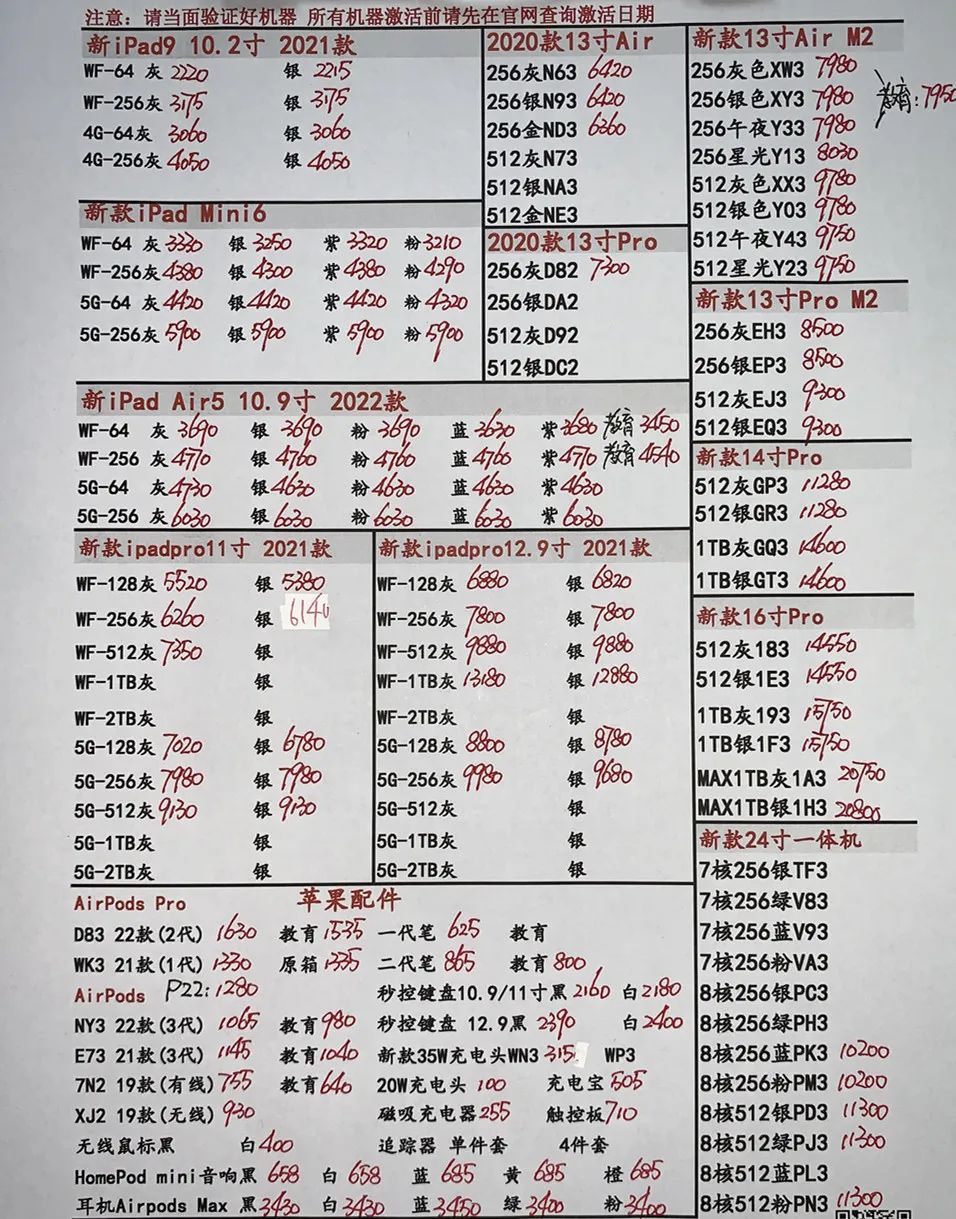 注意：请当面验证好机器 所有机器激活前请先在官网查询激活日期
新iPad9 10.2寸 2021款
WF-64 灰 2220 银 2215
WF-256灰 3175 银 3175
4G-64灰 3060 银 3060
4G-256灰 4050 银 4050
新款iPad Mini6
WF-64 灰 3330 银 3250 紫 3320 粉 3210
WF-256灰 4380 银 4300 紫 4380 粉 4290
5G-64 灰 4420 银 4420 紫 4420 粉 4320
5G-256灰 5900 银 5900 紫 5900 粉 5900
2020款13寸Air
256灰N63 6420
256银N93 6420
256金ND3 6360
512灰N73
512银NA3
512金NE3
2020款13寸Pro
256灰D82 7300
256银DA2
512灰D92
512银DC2
新iPad Air5 10.9寸 2022款
WF-64 灰 3690 银 3690 粉 3690 蓝 3630 紫 3680 教育 3450
WF-256 灰 4770 银 4760 粉 4760 蓝 4760 紫 4770 教育 4540
5G-64 灰 4730 银 4630 粉 4630 蓝 4630 紫 4630
5G-256 灰 6030 银 6030 粉 6030 蓝 6030 紫 6030
新款ipadpro11寸 2021款
WF-128灰 5520 银 5380
WF-256灰 6260 银 6140
WF-512灰 7350 银
WF-1TB灰 银
WF-2TB灰 银
5G-128灰 7020 银 6780
5G-256灰 7980 银 7980
5G-512灰 9130 银 9130
5G-1TB灰 银
5G-2TB灰 银
新款ipadpro12.9寸 2021款
WF-128灰 6880 银 6820
WF-256灰 7800 银 7800
WF-512灰 9880 银 9880
WF-1TB灰 13180 银 12880
WF-2TB灰 银
5G-128灰 8800 银 8780
5G-256灰 9980 银 9680
5G-512灰 银
5G-1TB灰 银
5G-2TB灰 银
新款13寸Air M2
256灰色XW3 7980
256银色XY3 7980 教育：7950
256午夜Y33 7980
256星光Y13 8030
512灰色XX3 9780
512银色Y03 9780
512午夜Y43 9750
512星光Y23 9750
新款13寸Pro M2
256灰EH3 8500
256银EP3 8500
512灰EJ3 9300
512银EQ3 9300
新款14寸Pro
512灰GP3 11280
512银GR3 11280
1TB灰GQ3 14600
1TB银GT3 14600
新款16寸Pro
512灰183 14550
512银1E3 14550
1TB灰193 15750
1TB银1F3 15750
MAX1TB灰1A3 20750
MAX1TB银1H3 20800
新款24寸一体机
7核256银TF3
7核256绿V83
7核256蓝V93
7核256粉VA3
8核256银PC3
8核256绿PH3
8核256蓝PK3 10200
8核256粉PM3 10200
8核512银PD3 11300
8核512绿PJ3 11300
8核512蓝PL3
8核512粉PN3 11300
AirPods Pro 苹果配件
D83 22款(2代) 1630 教育 1535 一代笔 625 教育
WK3 21款(1代) 1330 原箱 1335 二代笔 865 教育 800
AirPods P22: 1280 秒控键盘10.9/11寸黑 2160 白 2180
NY3 22款(3代) 1065 教育 980 秒控键盘 12.9黑 2390 白 2400
E73 21款(3代) 1145 教育 1040 新款35W充电头WN3 315 WP3
7N2 19款(有线) 755 教育 640 20W充电头 100 充电宝 505
XJ2 19款(无线) 930 磁吸充电器 255 触控板 710
无线鼠标黑 白 400 追踪器 单件套 4件套
HomePod mini音响黑 658 白 658 蓝 685 黄 685 橙 685
耳机Airpods Max 黑 3430 白 3430 蓝 3450 绿 3400 粉 3400